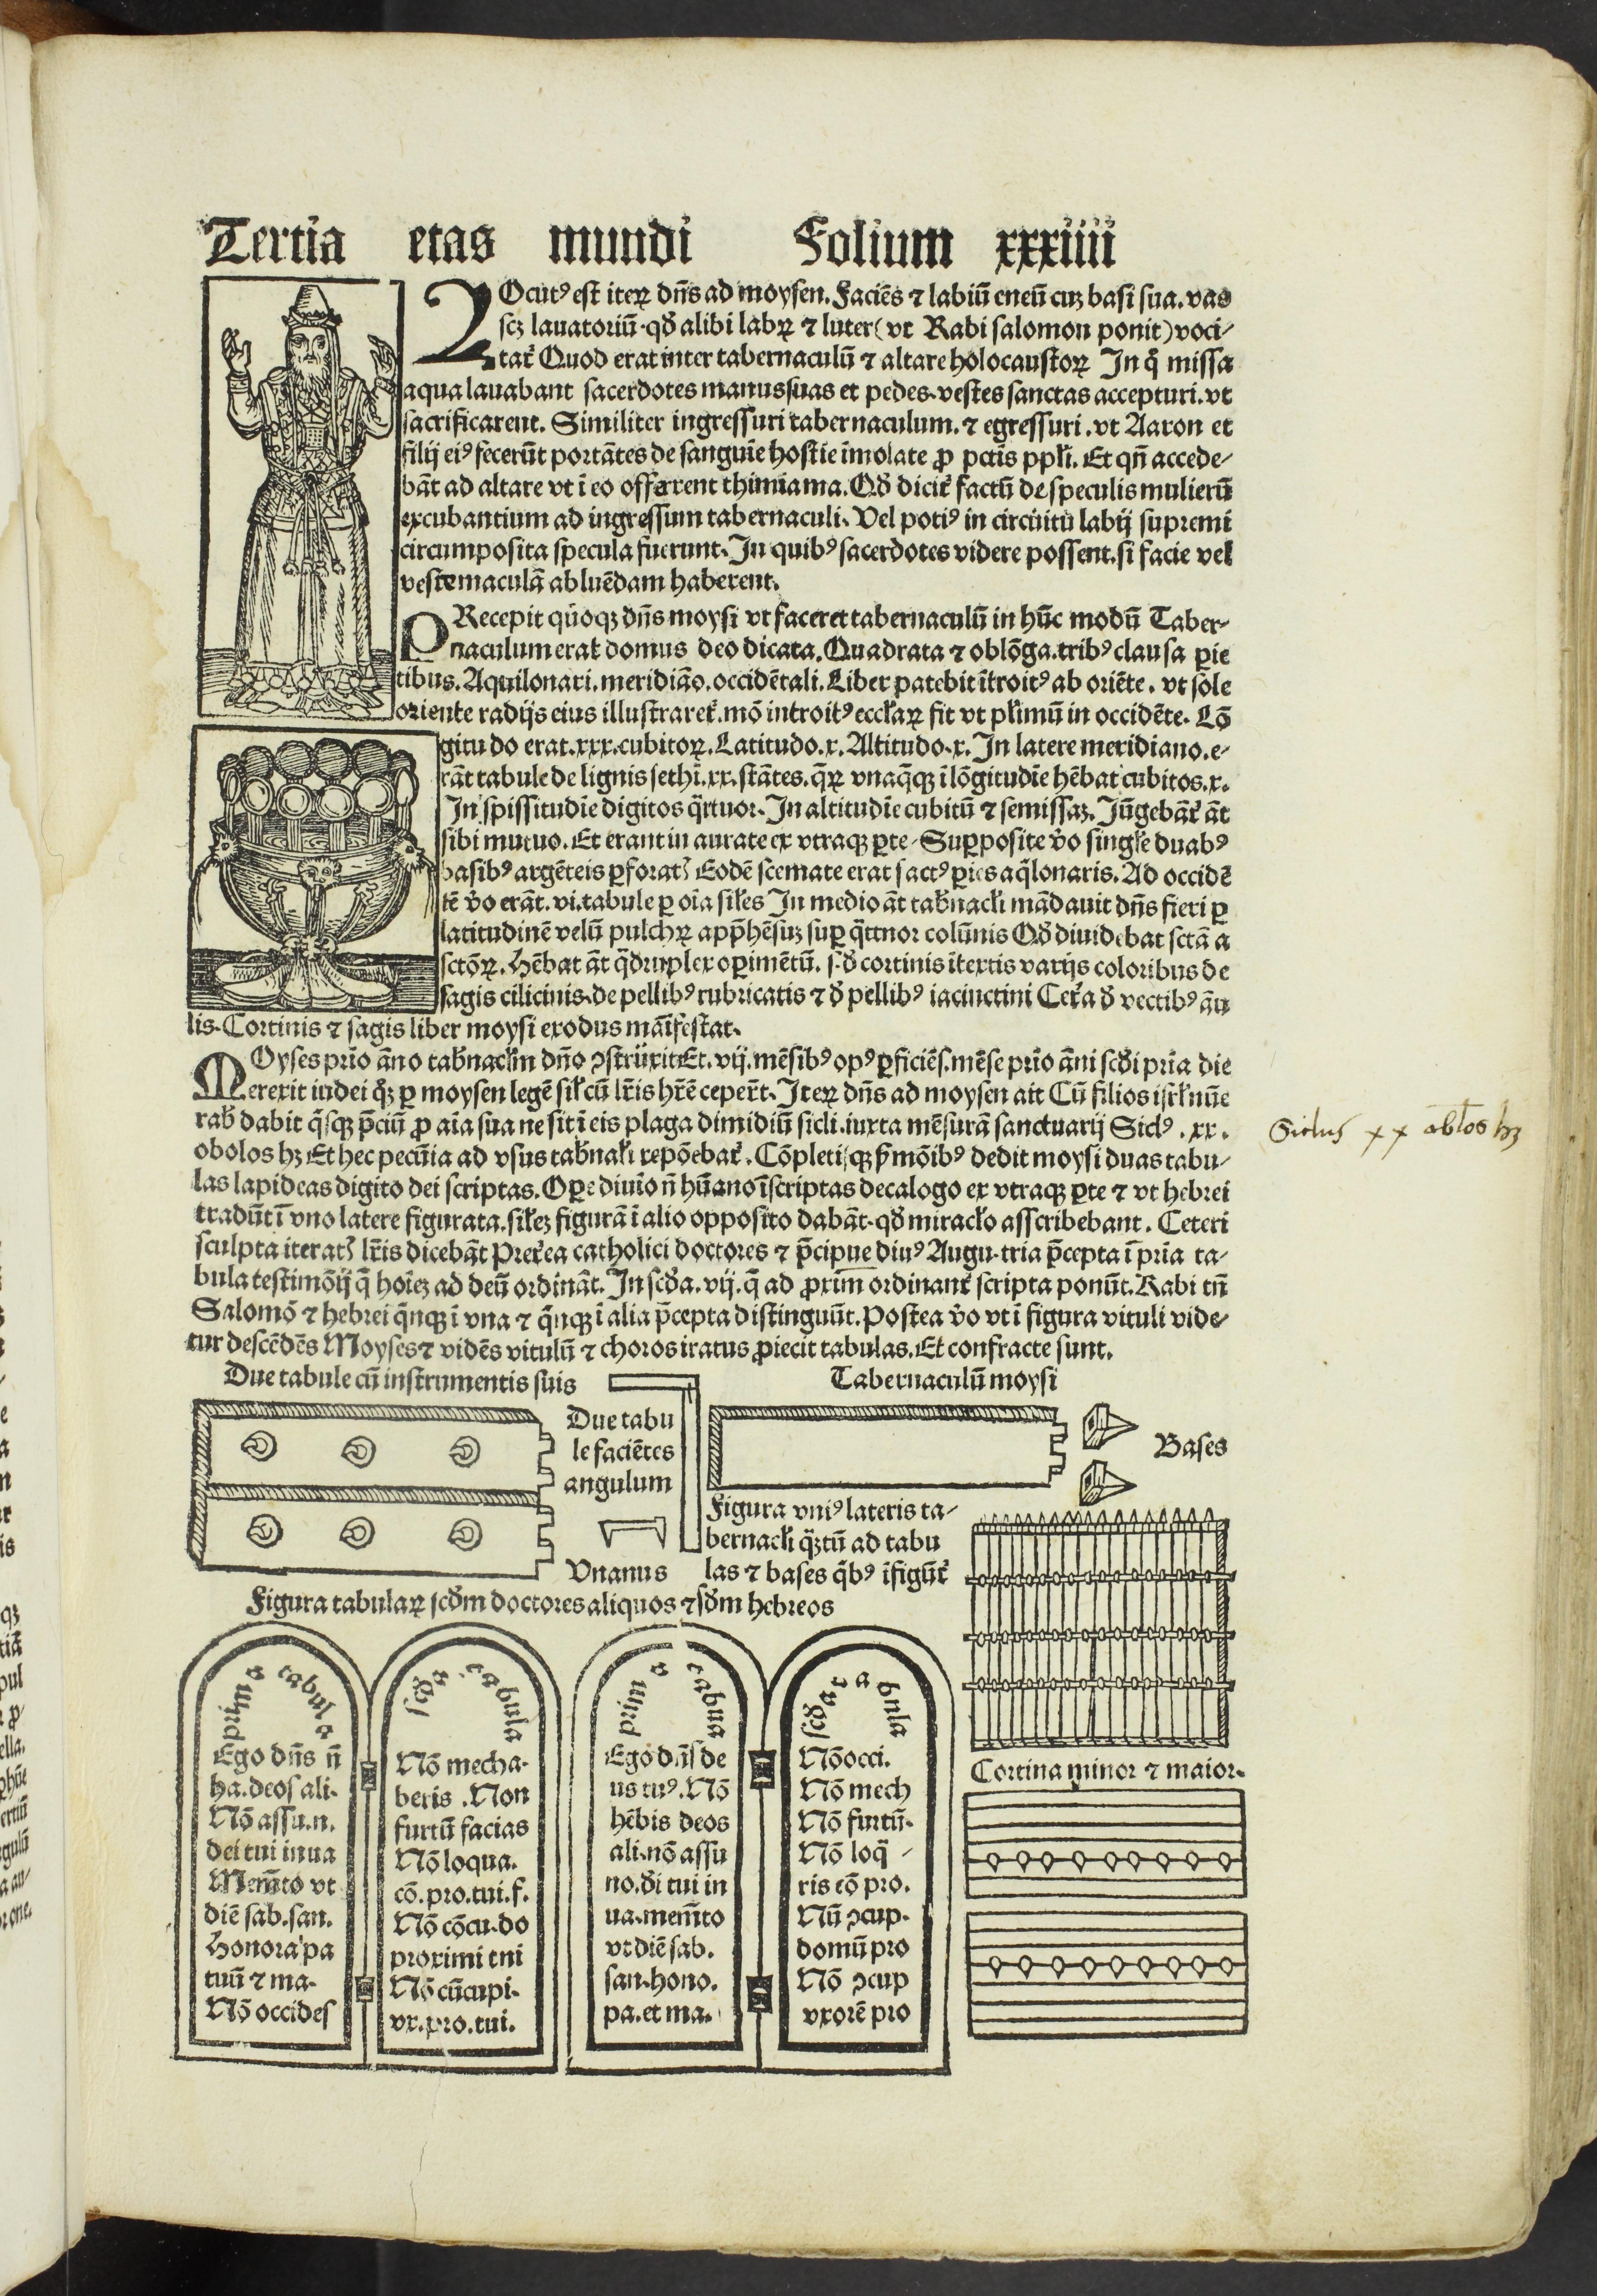 Tertia etas mundi Folium xxxiiii
LOcutꝰ est iteꝝ dn̄s ad moysen. Faciēs ⁊ labiū eneū cuꝫ basi sua. vas
scꝫ lauatoriū. qđ alibi labꝝ ⁊ luter (vt Rabi salomon ponit) voci⸗
tat᷑ Quod erat inter tabernaculū ⁊ altare holocaustoꝝ In q̄ missa
aqua lauabant sacerdotes manus suas et pedes. vestes sanctas accepturi. vt
sacrificarent. Similiter ingressuri tabernaculum. ⁊ egressuri. vt Aaron et
filij eiꝰ fecerūt portātes de sanguīe hostie īmolate ꝓ pctīs ppłi. Et qn̄ accede⸗
bāt ad altare vt ī eo offerrent thimiama. Qđ dicit᷑ factū de speculis mulierū
excubantium ad ingressum tabernaculi. Vel potiꝰ in circuitu labij supremi
circumposita specula fuerunt. In quibꝰ sacerdotes videre possent. si facie vel
veste maculā abluēdam haberent.
PRecepit quoqꝫ dn̄s moysi vt faceret tabernaculū in hūc modū Taber⸗
naculum erat domus deo dicata. Quadrata ⁊ oblōga. tribꝰ clausa ꝑie
tibus. Aquilonari. meridiāo. occidētali. Liber patebit ītroitꝰ ab oriēte. vt sole
oriente radijs eius illustraret᷑. mō introitꝰ ecclaꝝ fit vt płimū in occidēte. Lō
gitudo erat. xxx. cubitoꝝ. Latitudo. x. Altitudo. x. In latere meridiano. e⸗
rāt tabule de lignis sethī. xx. stātes. q̄ꝝ vnaq̄qꝫ ī lōgitudīe hēbat cubitos. x.
In spissitudīe digitos q̄ttuor. In altitudīe cubitū ⁊ semissaꝫ. Jūgebāt᷑ āt
sibi mutuo. Et erant in aurate ex vtraqꝫ ꝑte. Supposite v̄o singłe duabꝰ
basibꝰ argēteis ꝑforatꝭ Eodē scemate erat factꝰ ꝑies aq̄lonaris. Ad occidē
tē v̄o erāt. vi. tabule ꝑ oīa siłes In medio āt tab̄nacłi mādauit dn̄s fieri ꝑ
latitudinē velū pulchꝝ app̄hēsuꝫ suꝑ q̄ttuor colūnis Qđ diuidebat sctā a
sctōꝝ. Hēbat āt q̄druplex oꝑimētū. s. đ cortinis ītextis varijs coloribus de
sagis cilicinis. de pellibꝰ rubricatis ⁊ đ pellibꝰ iacinctini Cet᷑a đ vectibꝰ āu
lis. Cortinis ⁊ sagis liber moysi exodus māifestat.
MOyses prīo āno tab̄nacłm dn̄o ꝯstruxit Et. vij. mēsibꝰ opꝰ ꝑficiēs. mēse prīo āni scđi prīa die
erexit iudei q̄ꝫ ꝑ moysen legē sił cū lr̄is hr̄ē ceper̄t. Iteꝝ dn̄s ad moysen ait Cū filios isrł nūe
rab dabit q̄sqꝫ p̄ciū ꝓ aīa sua ne sit ī eis plaga dimidiū sicli. iuxta mēsurā sanctuarij Siclꝰ. xx.
obolos hꝫ Et hec pecunīa ad vsus tab̄nałi repōebat᷑. Cōpletisqꝫ p̄mōibꝰ dedit moysi duas tabu⸗
las lapideas digito dei scriptas. Oꝑe diuīo n̄ hūano īscriptas decalogo ex vtraqꝫ ꝑte ⁊ vt hebrei
tradūt ī vno latere figurata. siłeꝫ figurā ī alio opposito dabāt. qđ miracło asscribebant. Ceteri
sculpta iteratꝭ lr̄is dicebāt Preterea catholici doctores ⁊ p̄cipue diuꝰ Augu. tria p̄cepta ī prīa ta⸗
bula testimōij q̄ hoīeꝫ ad deū ordināt. In scđa. vij. q̄ ad ꝓximū ordinant᷑ scripta ponūt. Rabi tn̄
Salomō ⁊ hebrei q̄nqꝫ ī vna ⁊ q̄nqꝫ ī alia p̄cepta distinguūt. Postea v̄o vt ī figura vituli vide⸗
tur descēdēs Moyses ⁊ vidēs vitulū ⁊ choros iratus ꝓiecit tabulas. Et confracte sunt.
Siclus xx oblos hꝫ
Due tabule cū instrumentis suis
Tabernaculū moysi
Due tabu
le faciētes
angulum
Bases
Vnanus
Figura vniꝰ lateris ta⸗
bernacłi q̄ꝫtū ad tabu
las ⁊ bases q̄bꝰ īfigūt᷑
Figura tabulaꝝ scđm doctores aliquos ⁊ sđm hebreos
prima tabula
Ego dn̄s n̄
ha. deos ali.
Nō assu. n.
dei tui in ua
Mem̄to vt
diē sab. san.
Honora pa
tuū ⁊ ma.
Nō occides
scđa tabula
Nō mecha⸗
beris. Non
furtū facias
Nō loqua.
cō. pro. tui. f.
Nō cōcu. do
proximi tui
Nō cūcupi.
vx. pro. tui.
prima tabua
Ego dn̄s de
us tuꝰ. Nō
hēbis deos
ali. nō assu
no. đi tui in
ua. mem̄to
vt diē sab.
san. hono.
pa. et ma.
scđa tabula
Nō occi.
Nō mech
Nō furtū.
Nō loq̄⸗
ris cō pro.
Nū ꝯcup.
domū pro
Nō ꝯcup
vxorē pro
Cortina minor ⁊ maior.